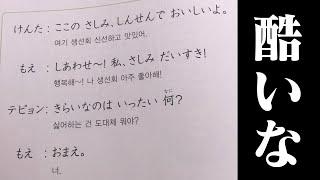 けんた: ここの さしみ、しんせんで おいしいよ。
여기 생선회 신선하고 맛있어.
もえ: しあわせ〜! 私、さしみ だいすき!
행복해~! 나 생선회 아주 좋아해!
テピョン: きらいなのは いったい 何(なに)?
싫어하는 건 도대체 뭐야?
もえ: おまえ。
너.
酷いな